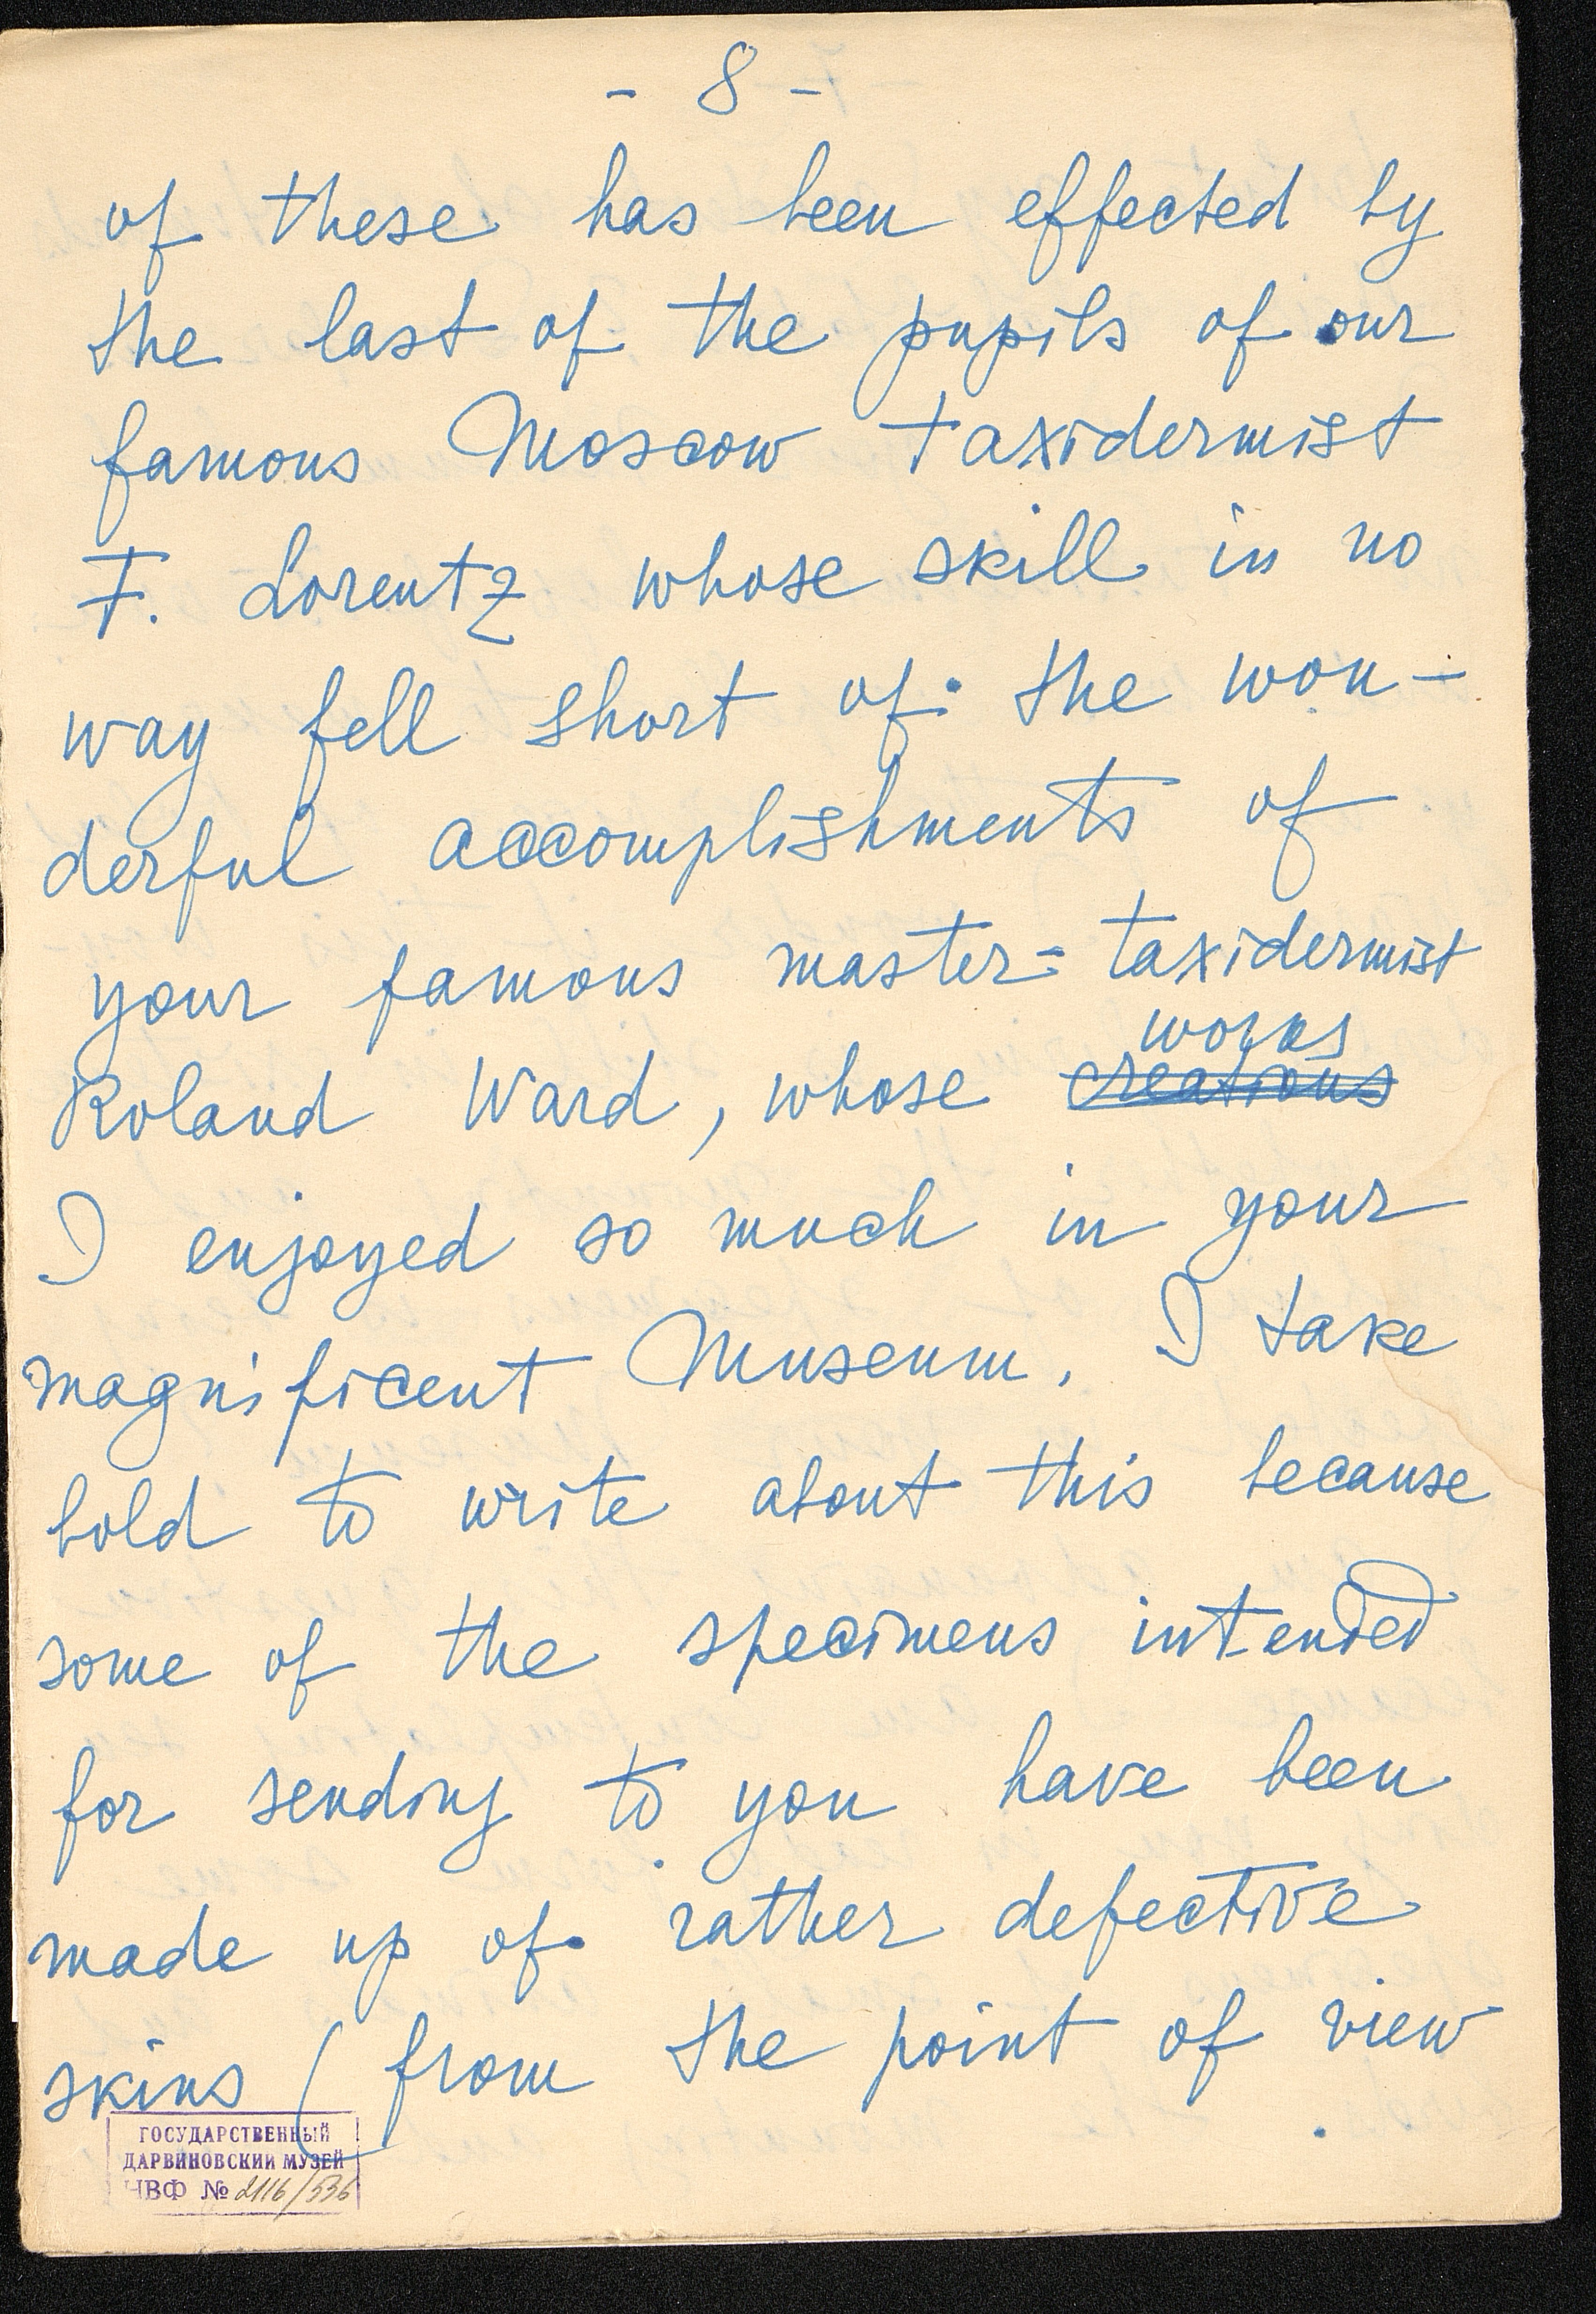 - 8 -
of these has been effected by
the last of the pupils of our
famous Moscow taxidermist
F. Lorentz whose skill in no
way fell short of the won-
derful accomplishments of
your famous master= taxidermist
works
Roland Ward, whose creations
I enjoyed so much in your
magnificent Museum. I take
bold to write about this because
some of the specimens intended
for sending to you have been
made up of rather defective
skins (from the point of view
ГОСУДАРСТВЕННЫЙ
ДАРВИНОВСКИЙ МУЗЕЙ
НВФ № 2116/536